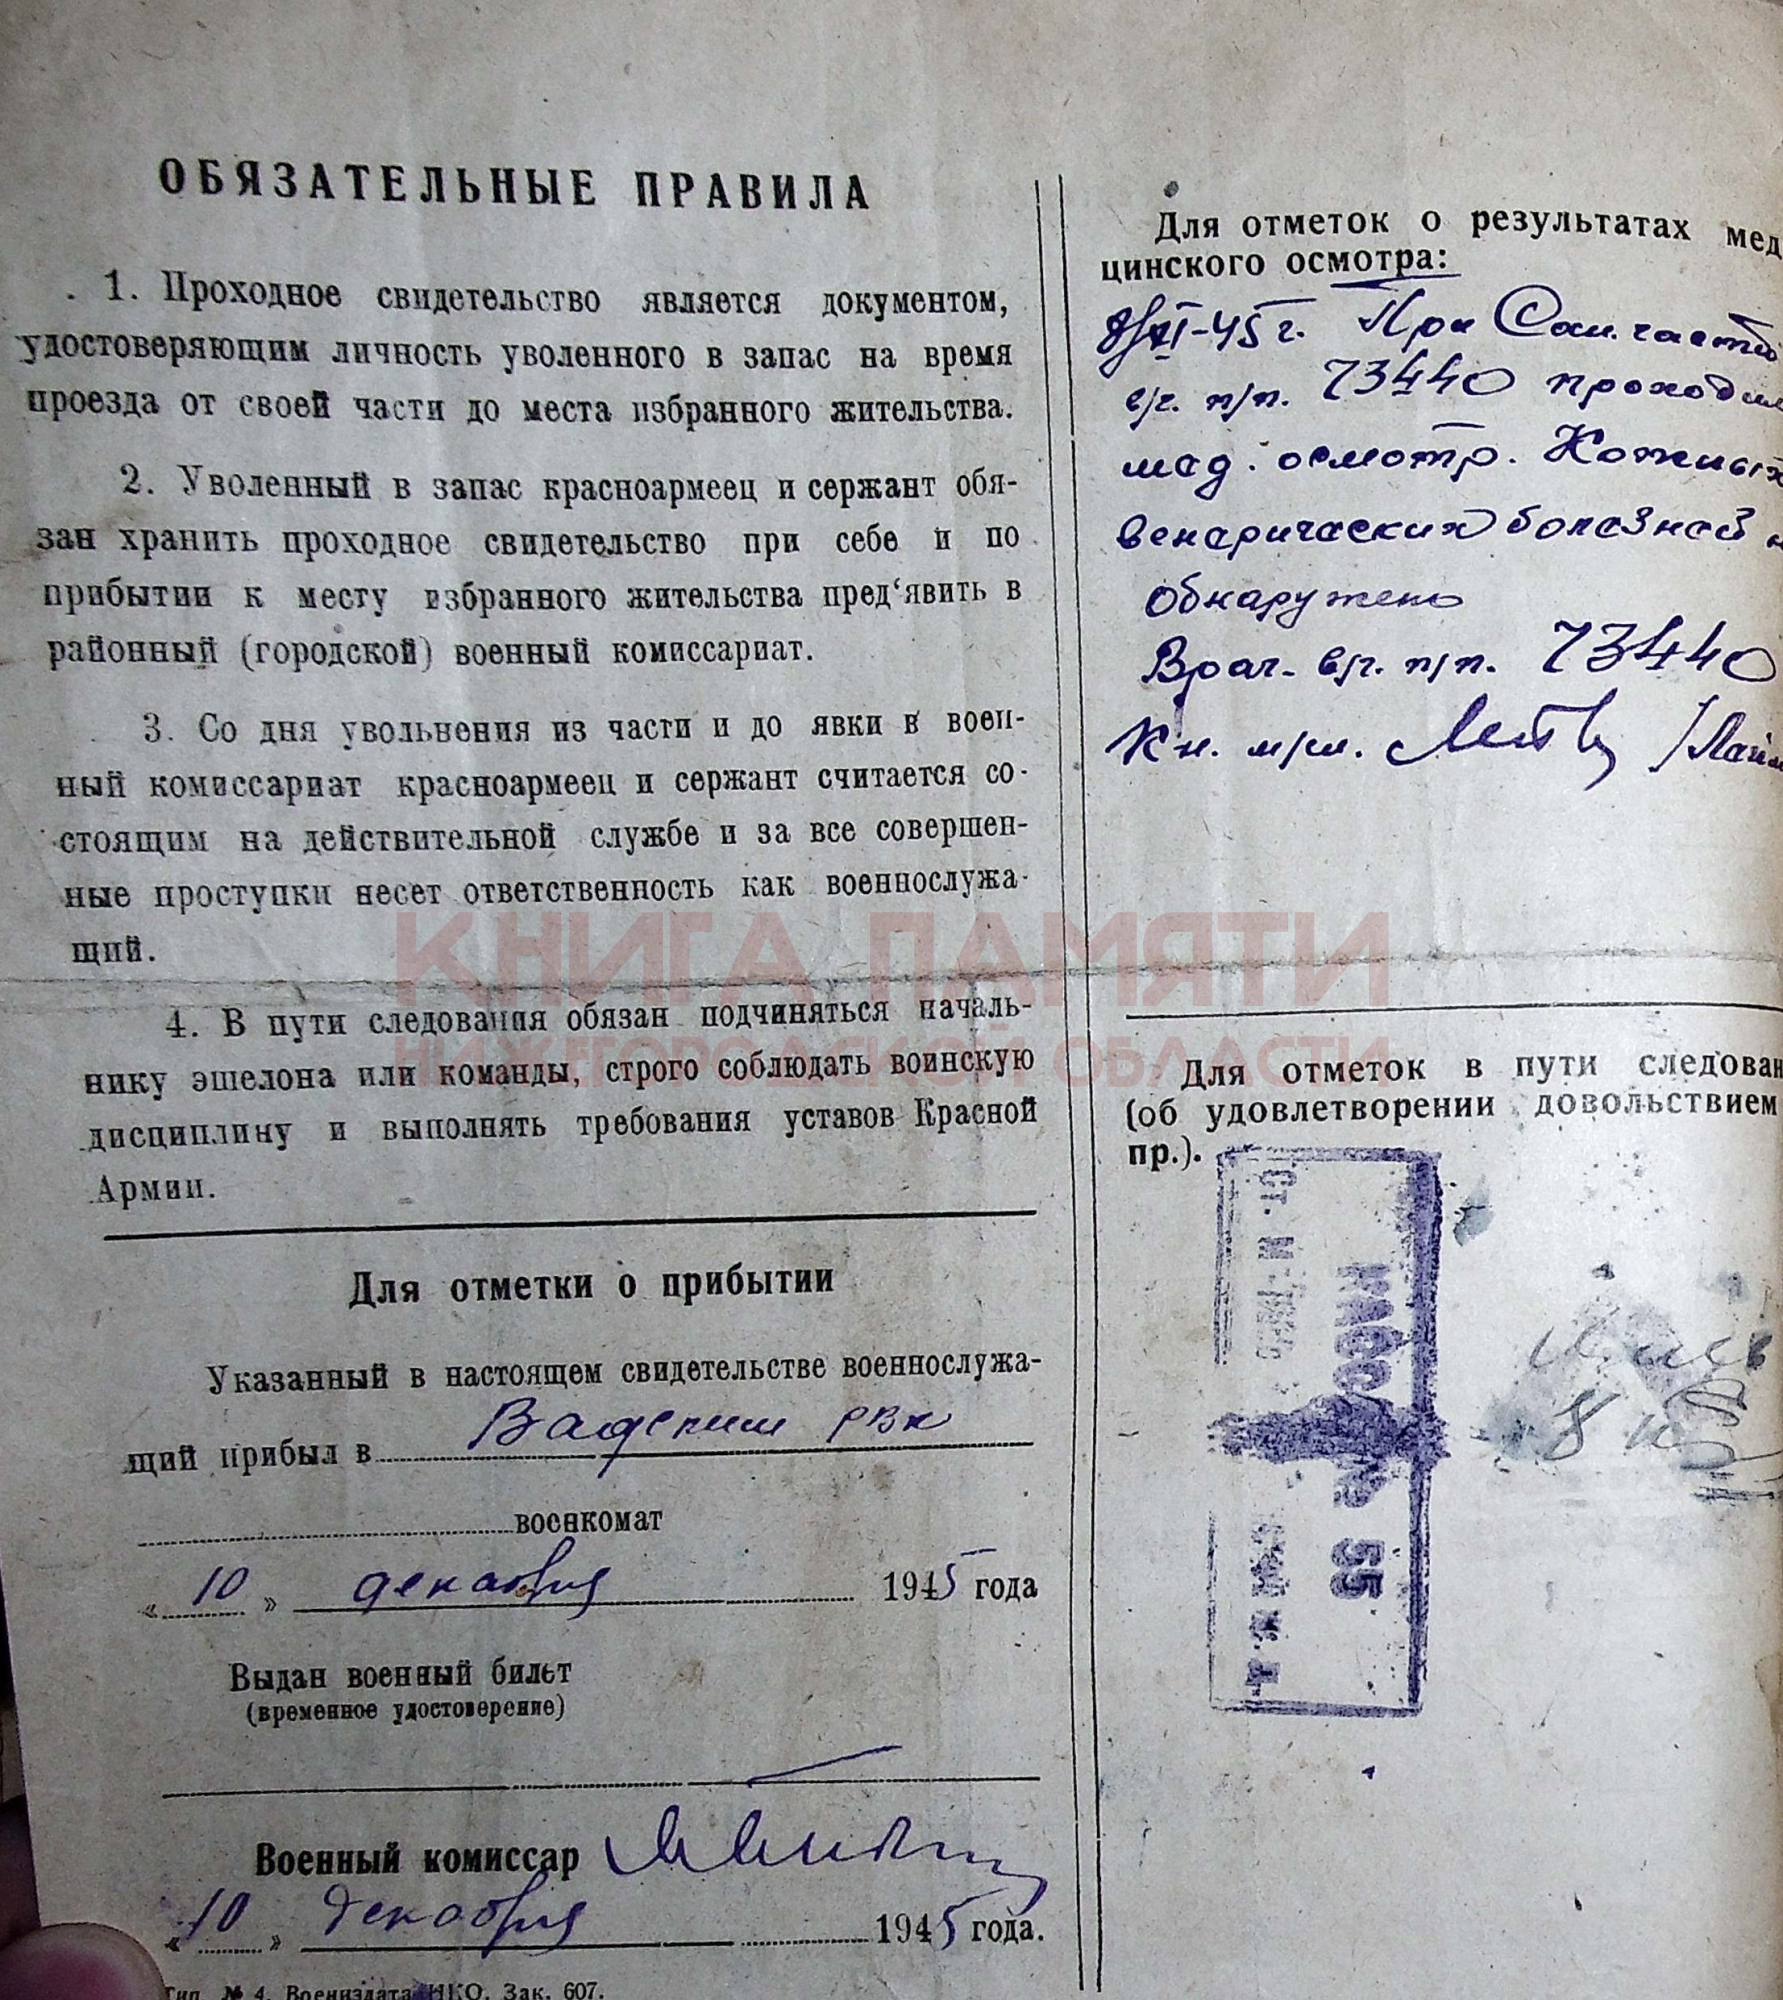 ОБЯЗАТЕЛЬНЫЕ ПРАВИЛА
1. Проходное свидетельство является документом,
удостоверяющим личность уволенного в запас на время
проезда от своей части до места избранного жительства.
2. Уволенный в запас красноармеец и сержант обя-
зан хранить проходное свидетельство при себе и по
прибытии к месту избранного жительства пред‘явить в
районный (городской) военный комиссариат.
3. Со дня увольнения из части и до явки в воен-
ный комиссариат красноармеец и сержант считается со-
стоящим на действительной службе и за все совершен-
ные проступки несет ответственность как военнослужа-
щий.
4. В пути следования обязан подчиняться началь-
нику эшелона или команды, строго соблюдать воинскую
дисциплину и выполнять требования уставов Красной
Армии.
Для отметки о прибытии
Указанный в настоящем свидетельстве военнослужа-
щий прибыл в РВК
военкомат
« 10 » декабря 1945 года
Выдан военный билет
(временное удостоверение)
Военный комиссар
« 10 » декабря 1945 года.
Тип. № 4. Воениздата НКО. Зак. 607.
Для отметок о результатах мед
цинского осмотра:
XI-45 г. При Сан. части
в/ч. п/п. 73440 проходил
мед. осмотр. Кожных
венерических болезней н
обнаружено
Врач. в/ч. п/п. 73440
Для отметок в пути следован
(об удовлетворении довольствием
пр.).
55
КНИГА ПАМЯТИ
НИЖЕГОРОДСКОЙ ОБЛАСТИ